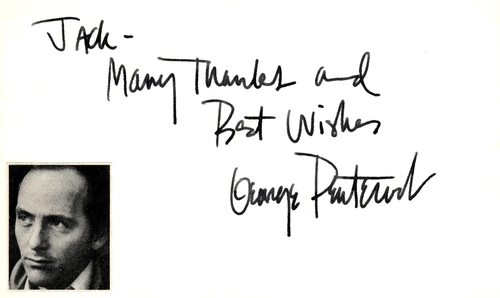 Jack -
Many Thanks and
Best Wishes
George Pentecost